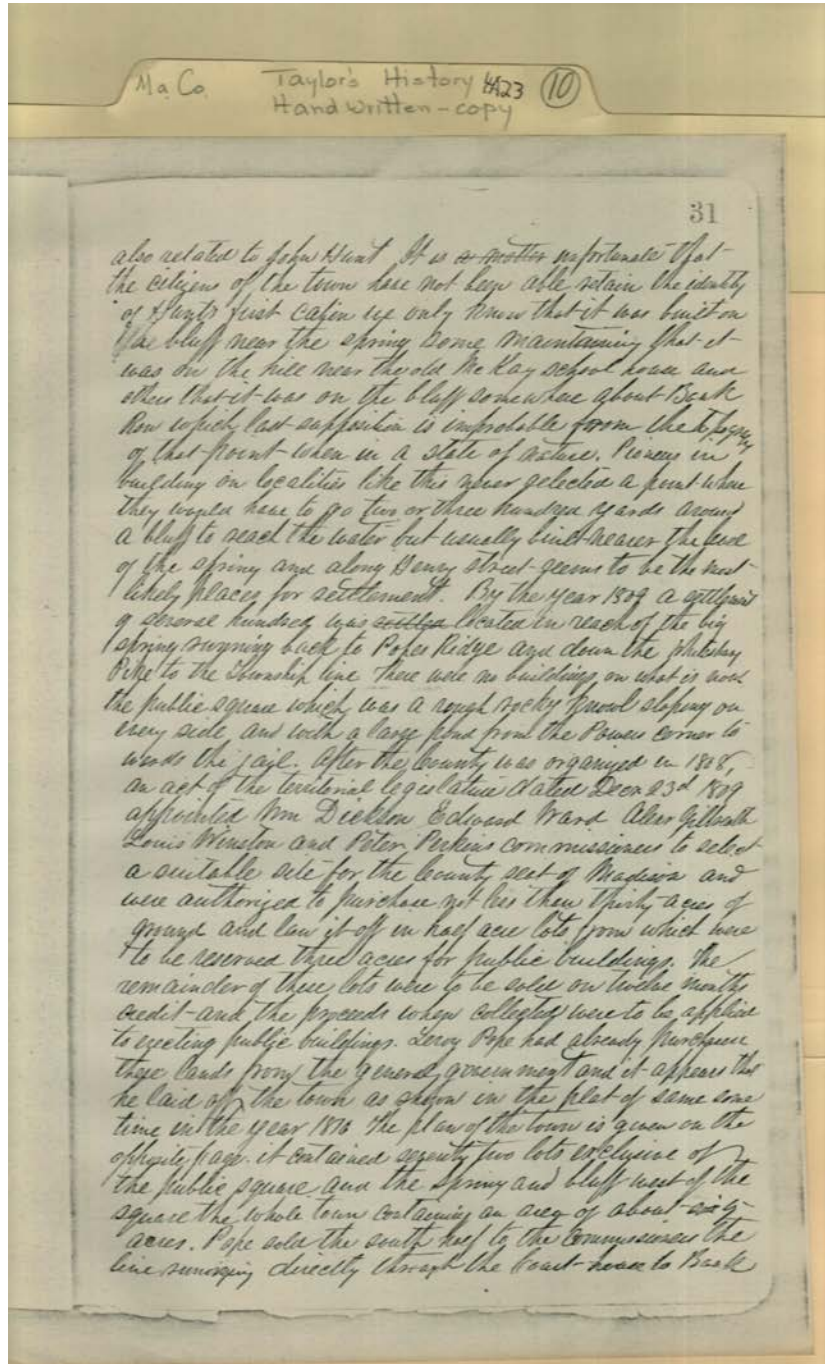 Ma. Co. Taylor's History HA23 (10)
Handwritten - copy
31
also related to John Hunt It is a matter unfortunate that
the citizens of the town have not been able retain the identity
of Hunts first cabin we only know that it was built on
the bluff near the spring some maintaining that it
was on the hill near the old McKay school house and
others that it was on the bluff somewhere about Bank
Row which last supposition is improbable from the
of that point when in a state of nature. Pioneers in
building on localities like this never selected a point where
they would have to go two or three hundred yards around
a bluff to reach the water but usually built nearer the
of the spring and along Henry street seems to be the most
likely places for settlement. By the year 1809 a settlement
of several hundred was settled located in reach of the big
spring running back to Popes Ridge and down the
Pike to the Township line There were no buildings, on what is now
the public square which was a rough rocky knowl sloping on
every side and with a large pond from the Powers corner to
wards the jail. After the County was organized in 1808,
an act of the territorial legislature dated Decr 23d 1809
appointed Wm Dickson Edward Ward Alexr Gilbreath
Louis Winston and Peter Perkins commissioners to select
a suitable site for the County seat of Madison and
were authorized to purchase not less then thirty acres of
ground and law it off in half acre lots from which were
to be reserved three acres for public buildings. The
remainder of these lots were to be sold on twelve months
credit and the proceeds when collected were to be applied
to erecting public buildings. Leroy Pope had already purchased
these lands from the general government and it appears that
he laid off the town as shown in the plat of same some
time in the year 1810 The plan of the town is given on the
opposite page. it contained seventy two lots exclusive of
the public square and the spring and bluff west of the
square the whole town containing an area of about sixty
acres. Pope sold the south half to the Commissioners the
line running directly through the Court-house to Bank